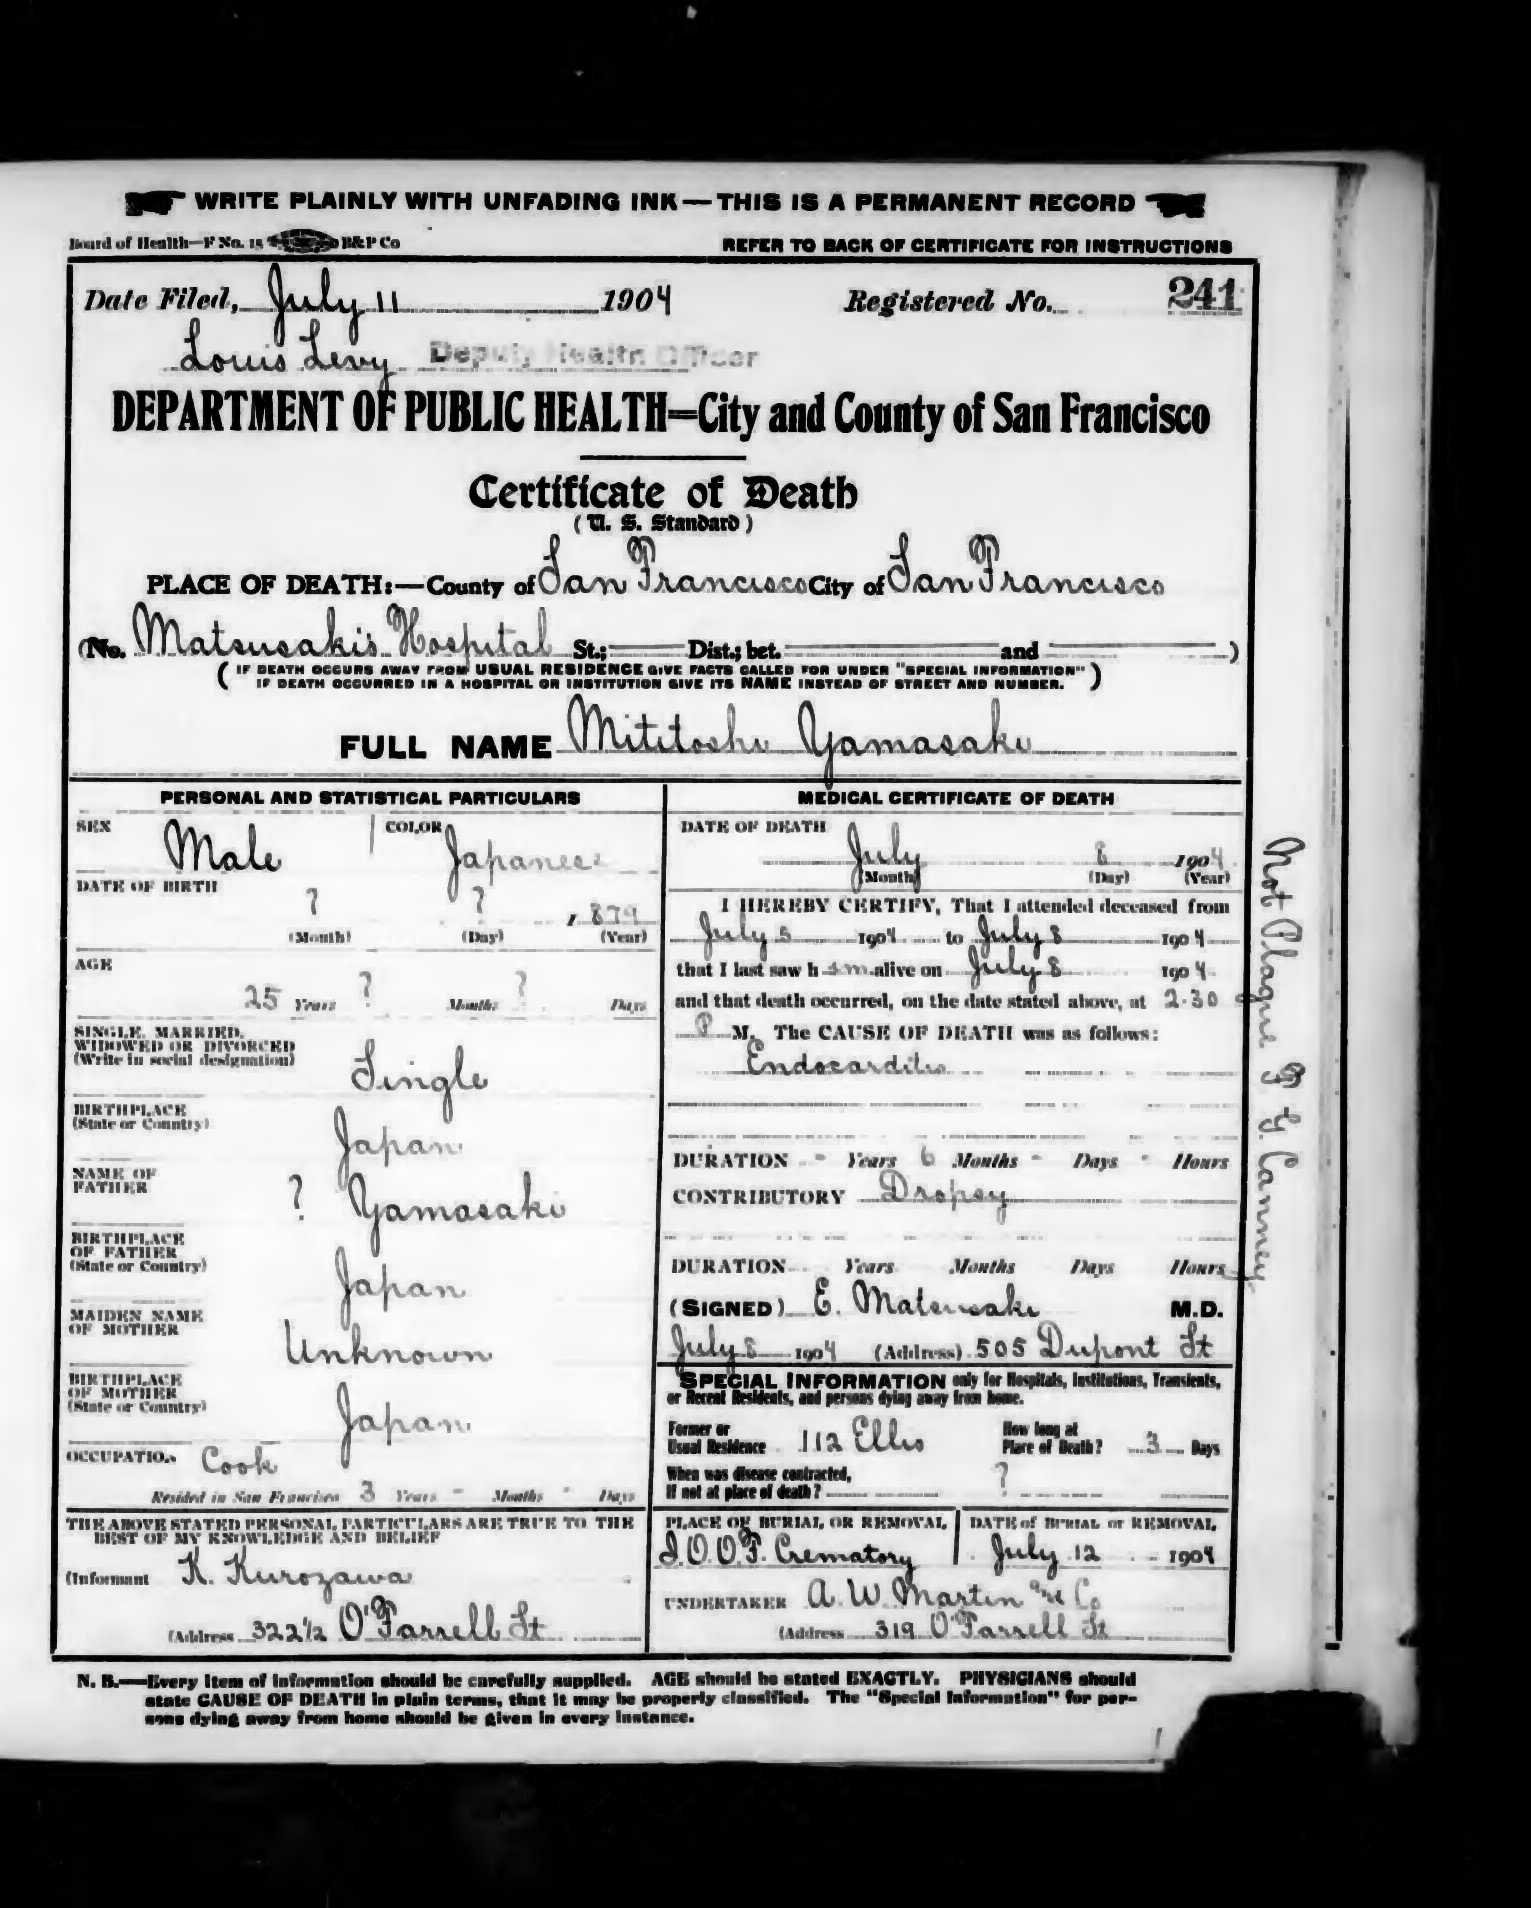 WRITE PLAINLY WITH UNFADING INK — THIS IS A PERMANENT RECORD
Board of Health—F No. 15 B&P Co REFER TO BACK OF CERTIFICATE FOR INSTRUCTIONS
Date Filed, July 11 1904 Registered No. 241
Louis Levy Deputy Health Officer
DEPARTMENT OF PUBLIC HEALTH=City and County of San Francisco
Certificate of Death
(U. S. Standard)
PLACE OF DEATH:—County of San Francisco City of San Francisco
(No. Matsusaki's Hospital St.; Dist.; bet. and )
( IF DEATH OCCURS AWAY FROM USUAL RESIDENCE GIVE FACTS CALLED FOR UNDER "SPECIAL INFORMATION"
IF DEATH OCCURRED IN A HOSPITAL OR INSTITUTION GIVE ITS NAME INSTEAD OF STREET AND NUMBER. )
FULL NAME Mititoshi Yamasaki
PERSONAL AND STATISTICAL PARTICULARS
SEX Male COLOR Japanese
DATE OF BIRTH ? ? , 879
(Month) (Day) (Year)
AGE
25 Years ? Months ? Days
SINGLE, MARRIED,
WIDOWED OR DIVORCED
(Write in social designation)
Single
BIRTHPLACE
(State or Country)
Japan
NAME OF
FATHER
? Yamasaki
BIRTHPLACE
OF FATHER
(State or Country)
Japan
MAIDEN NAME
OF MOTHER
Unknown
BIRTHPLACE
OF MOTHER
(State or Country)
Japan
OCCUPATION Cook
Resided in San Francisco 3 Years - Months - Days
THE ABOVE STATED PERSONAL PARTICULARS ARE TRUE TO THE
BEST OF MY KNOWLEDGE AND BELIEF
(Informant K. Kurozawa
(Address 322½ O'Farrell St
MEDICAL CERTIFICATE OF DEATH
DATE OF DEATH
July 8 1904
(Month) (Day) (Year)
I HEREBY CERTIFY, That I attended deceased from
July 5 1904 to July 8 1904
that I last saw h im alive on July 8 1904
and that death occurred, on the date stated above, at 2.30
P M. The CAUSE OF DEATH was as follows:
Endocarditis
DURATION - Years 6 Months - Days - Hours
CONTRIBUTORY Dropsy
DURATION Years Months Days Hours
(SIGNED) E. Matsusaki M.D.
July 8 1904 (Address) 505 Dupont St
SPECIAL INFORMATION only for Hospitals, Institutions, Transients,
or Recent Residents, and persons dying away from home.
Former or
Usual Residence 112 Ellis
How long at
Place of Death? 3 Days
When was disease contracted,
If not at place of death? ?
PLACE OF BURIAL OR REMOVAL
I.O.O.F. Crematory
DATE of BURIAL or REMOVAL
July 12 1904
UNDERTAKER A. W. Martin and Co
(Address 319 O'Farrell St
Not Plague
N. B.—Every item of information should be carefully supplied. AGE should be stated EXACTLY. PHYSICIANS should
state CAUSE OF DEATH in plain terms, that it may be properly classified. The "Special Information" for per-
sons dying away from home should be given in every instance.